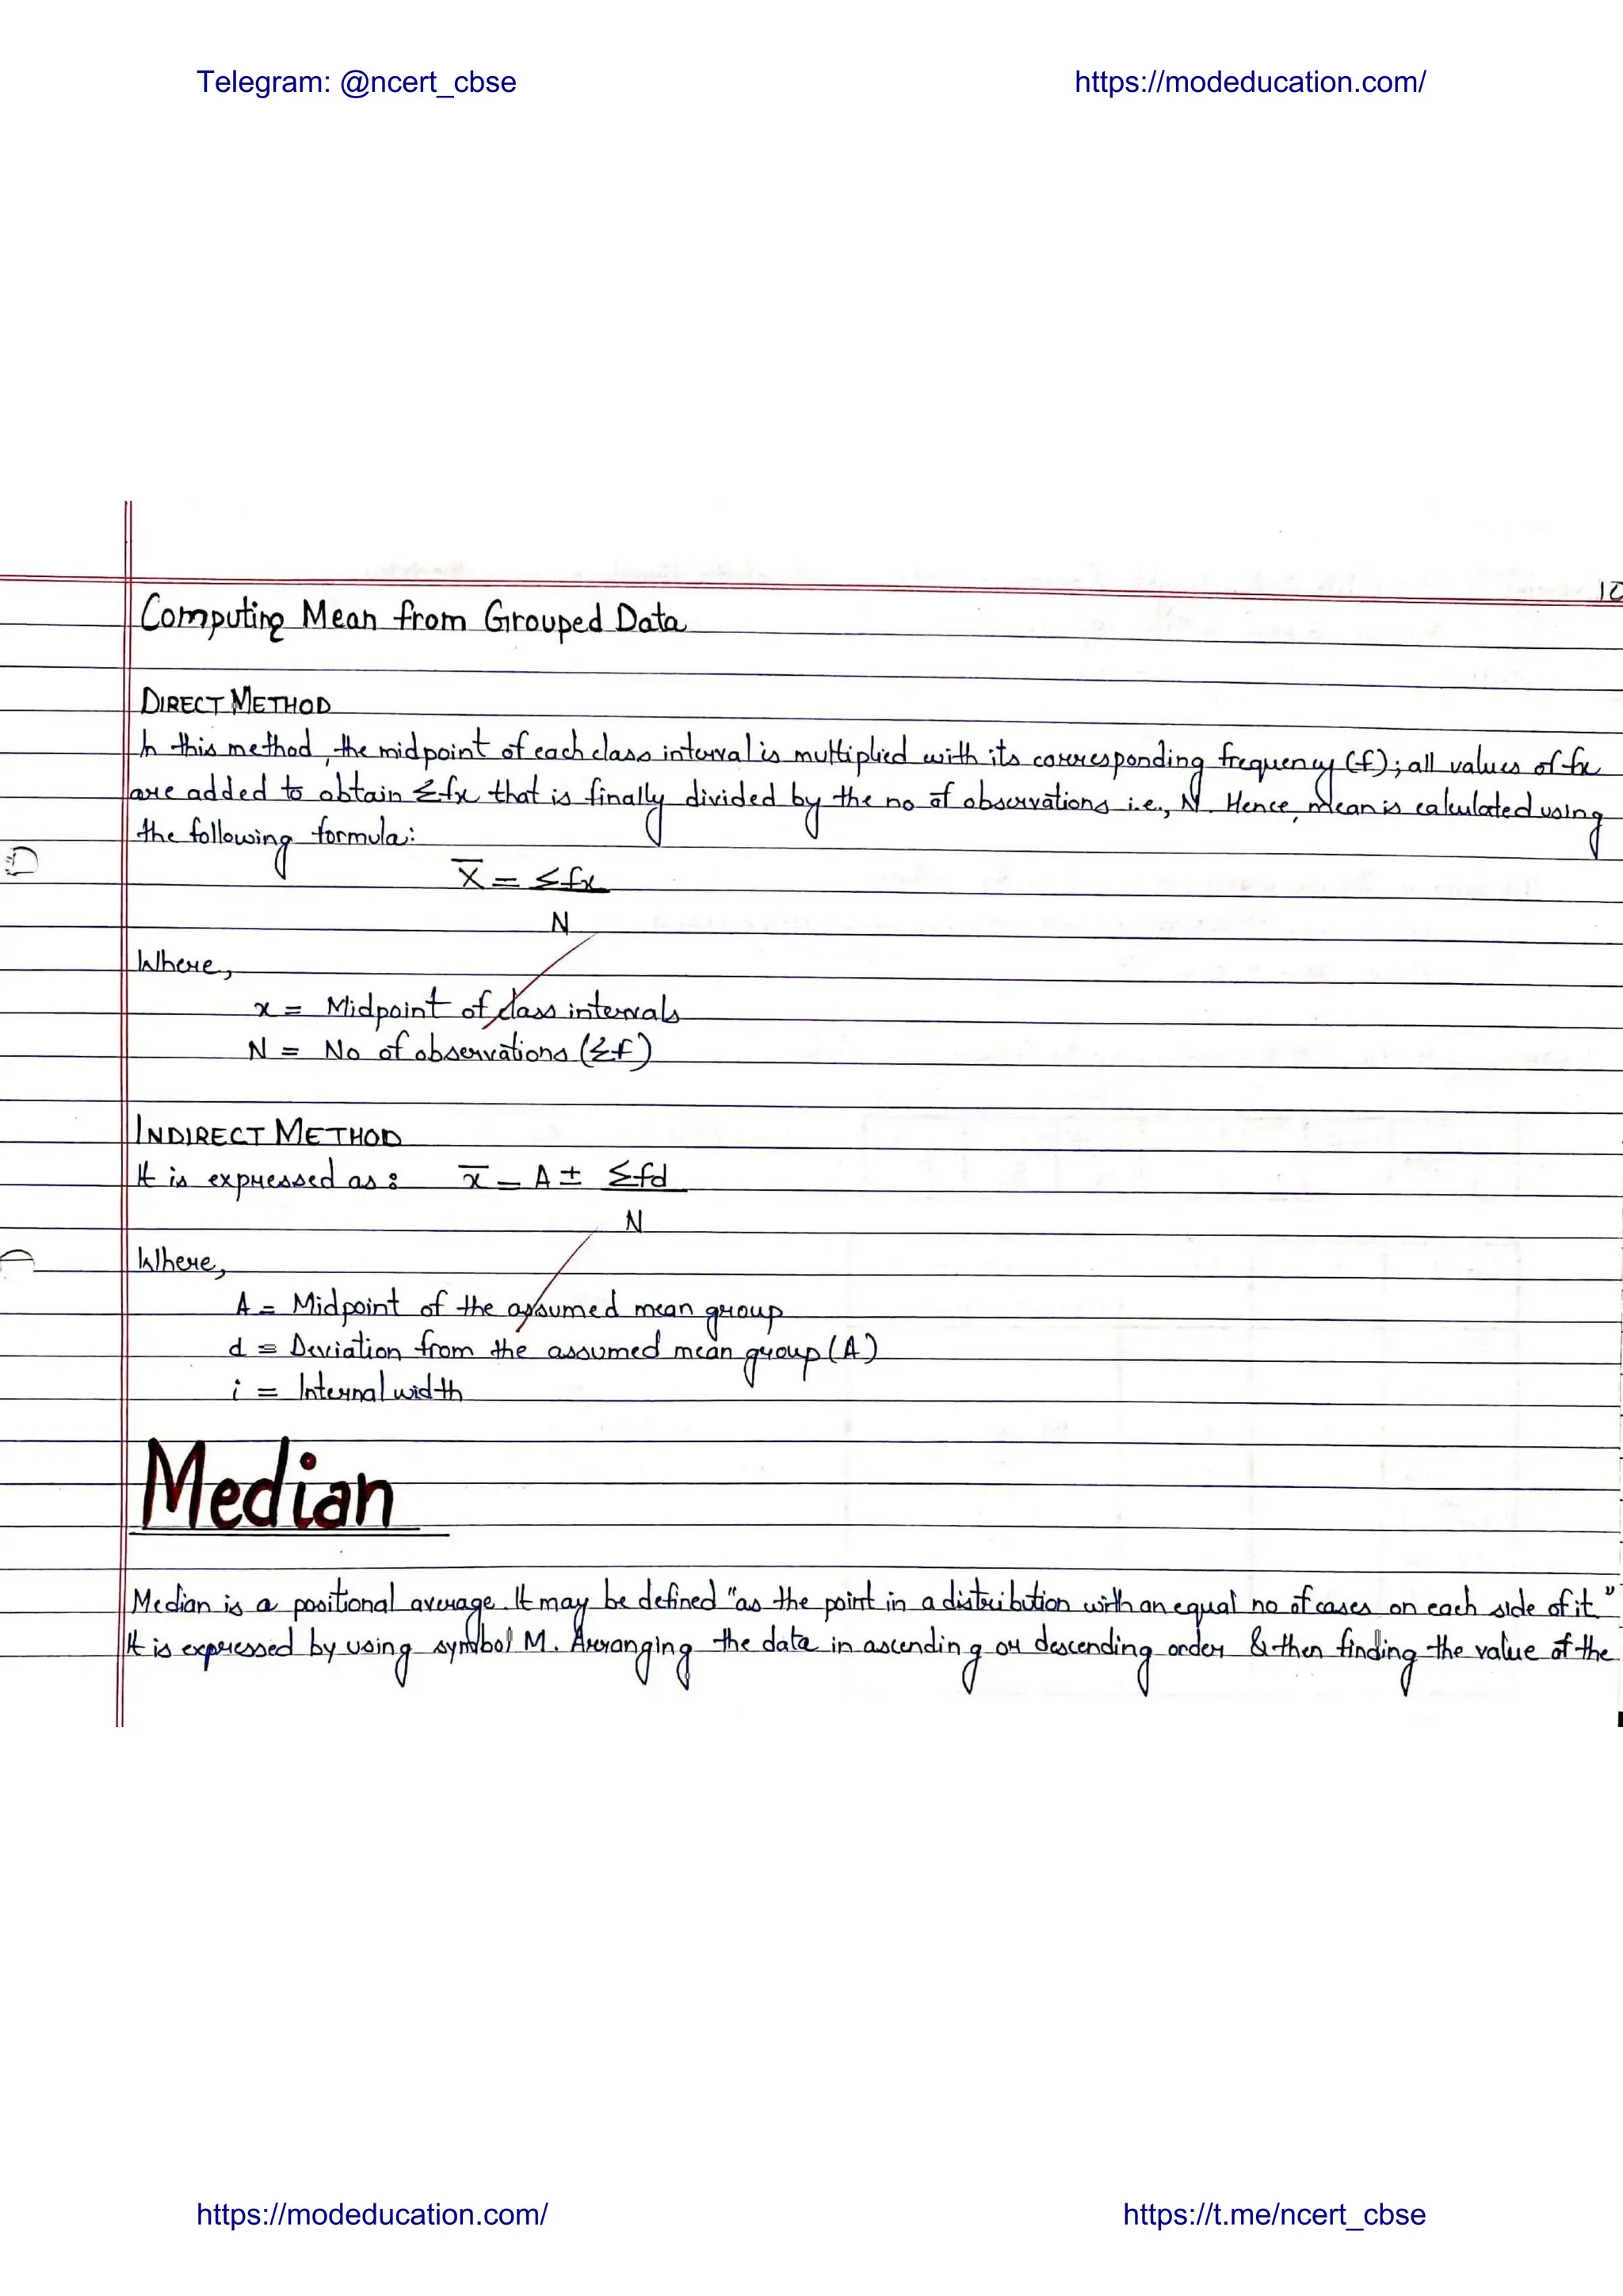 Telegram: @ncert_cbse https://modeducation.com/
10
Computing Mean from Grouped Data
DIRECT METHOD
In this method, the midpoint of each class interval is multiplied with its corresponding frequency (f); all values of fx
are added to obtain Σfx that is finally divided by the no of observations i.e., N. Hence, mean is calculated using
the following formula:
X̅ = Σfx
N
Where,
x = Midpoint of class intervals
N = No of observations (Σf)
INDIRECT METHOD
It is expressed as: x̅ = A ± Σfd
N
Where,
A = Midpoint of the assumed mean group
d = Deviation from the assumed mean group (A)
i = Internal width
Median
Median is a positional average. It may be defined "as the point in a distribution with an equal no of cases on each side of it."
It is expressed by using symbol M. Arranging the data in ascending or descending order & then finding the value of the
https://modeducation.com/ https://t.me/ncert_cbse